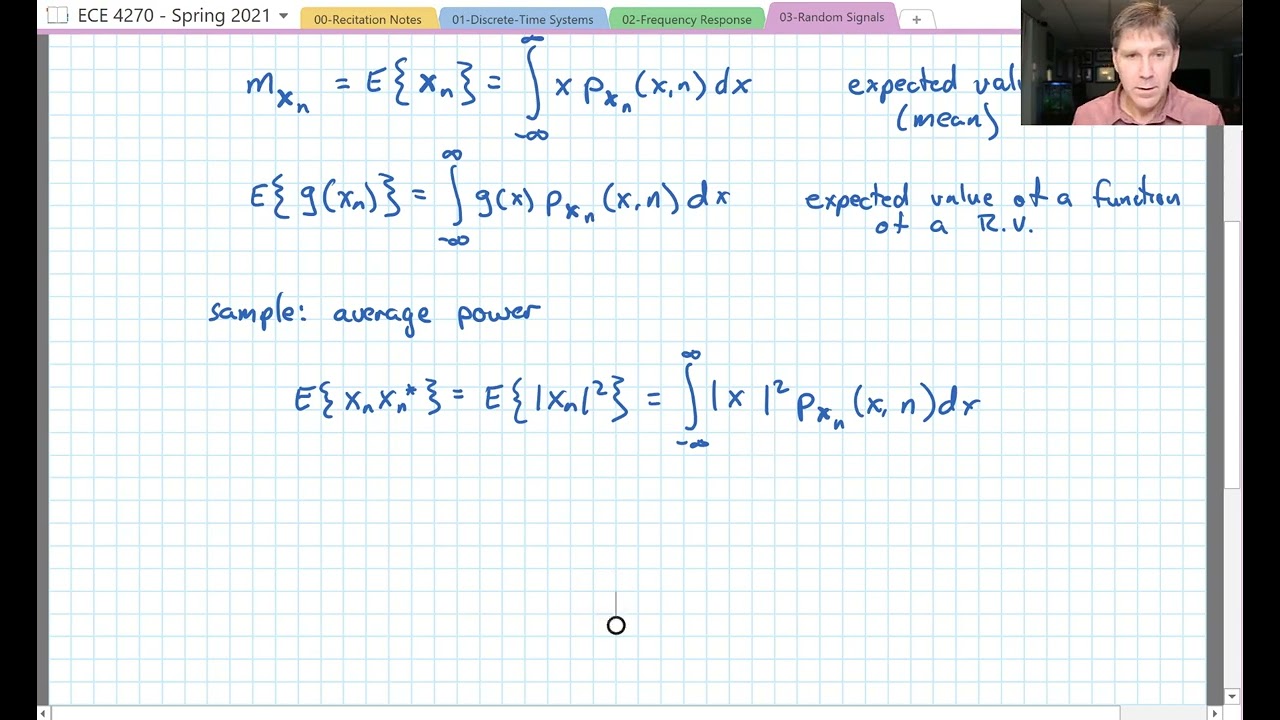 ECE 4270 - Spring 2021
00-Recitation Notes 01-Discrete-Time Systems 02-Frequency Response 03-Random Signals +
m_{x_n} = E{x_n} = ∫_{-∞}^{∞} x p_{x_n}(x,n) dx expected
(mean)
E{g(x_n)} = ∫_{-∞}^{∞} g(x) p_{x_n}(x,n) dx expected value of a function
of a R.V.
sample: average power
E{x_n x_n*} = E{|x_n|²} = ∫_{-∞}^{∞} |x|² p_{x_n}(x, n) dx